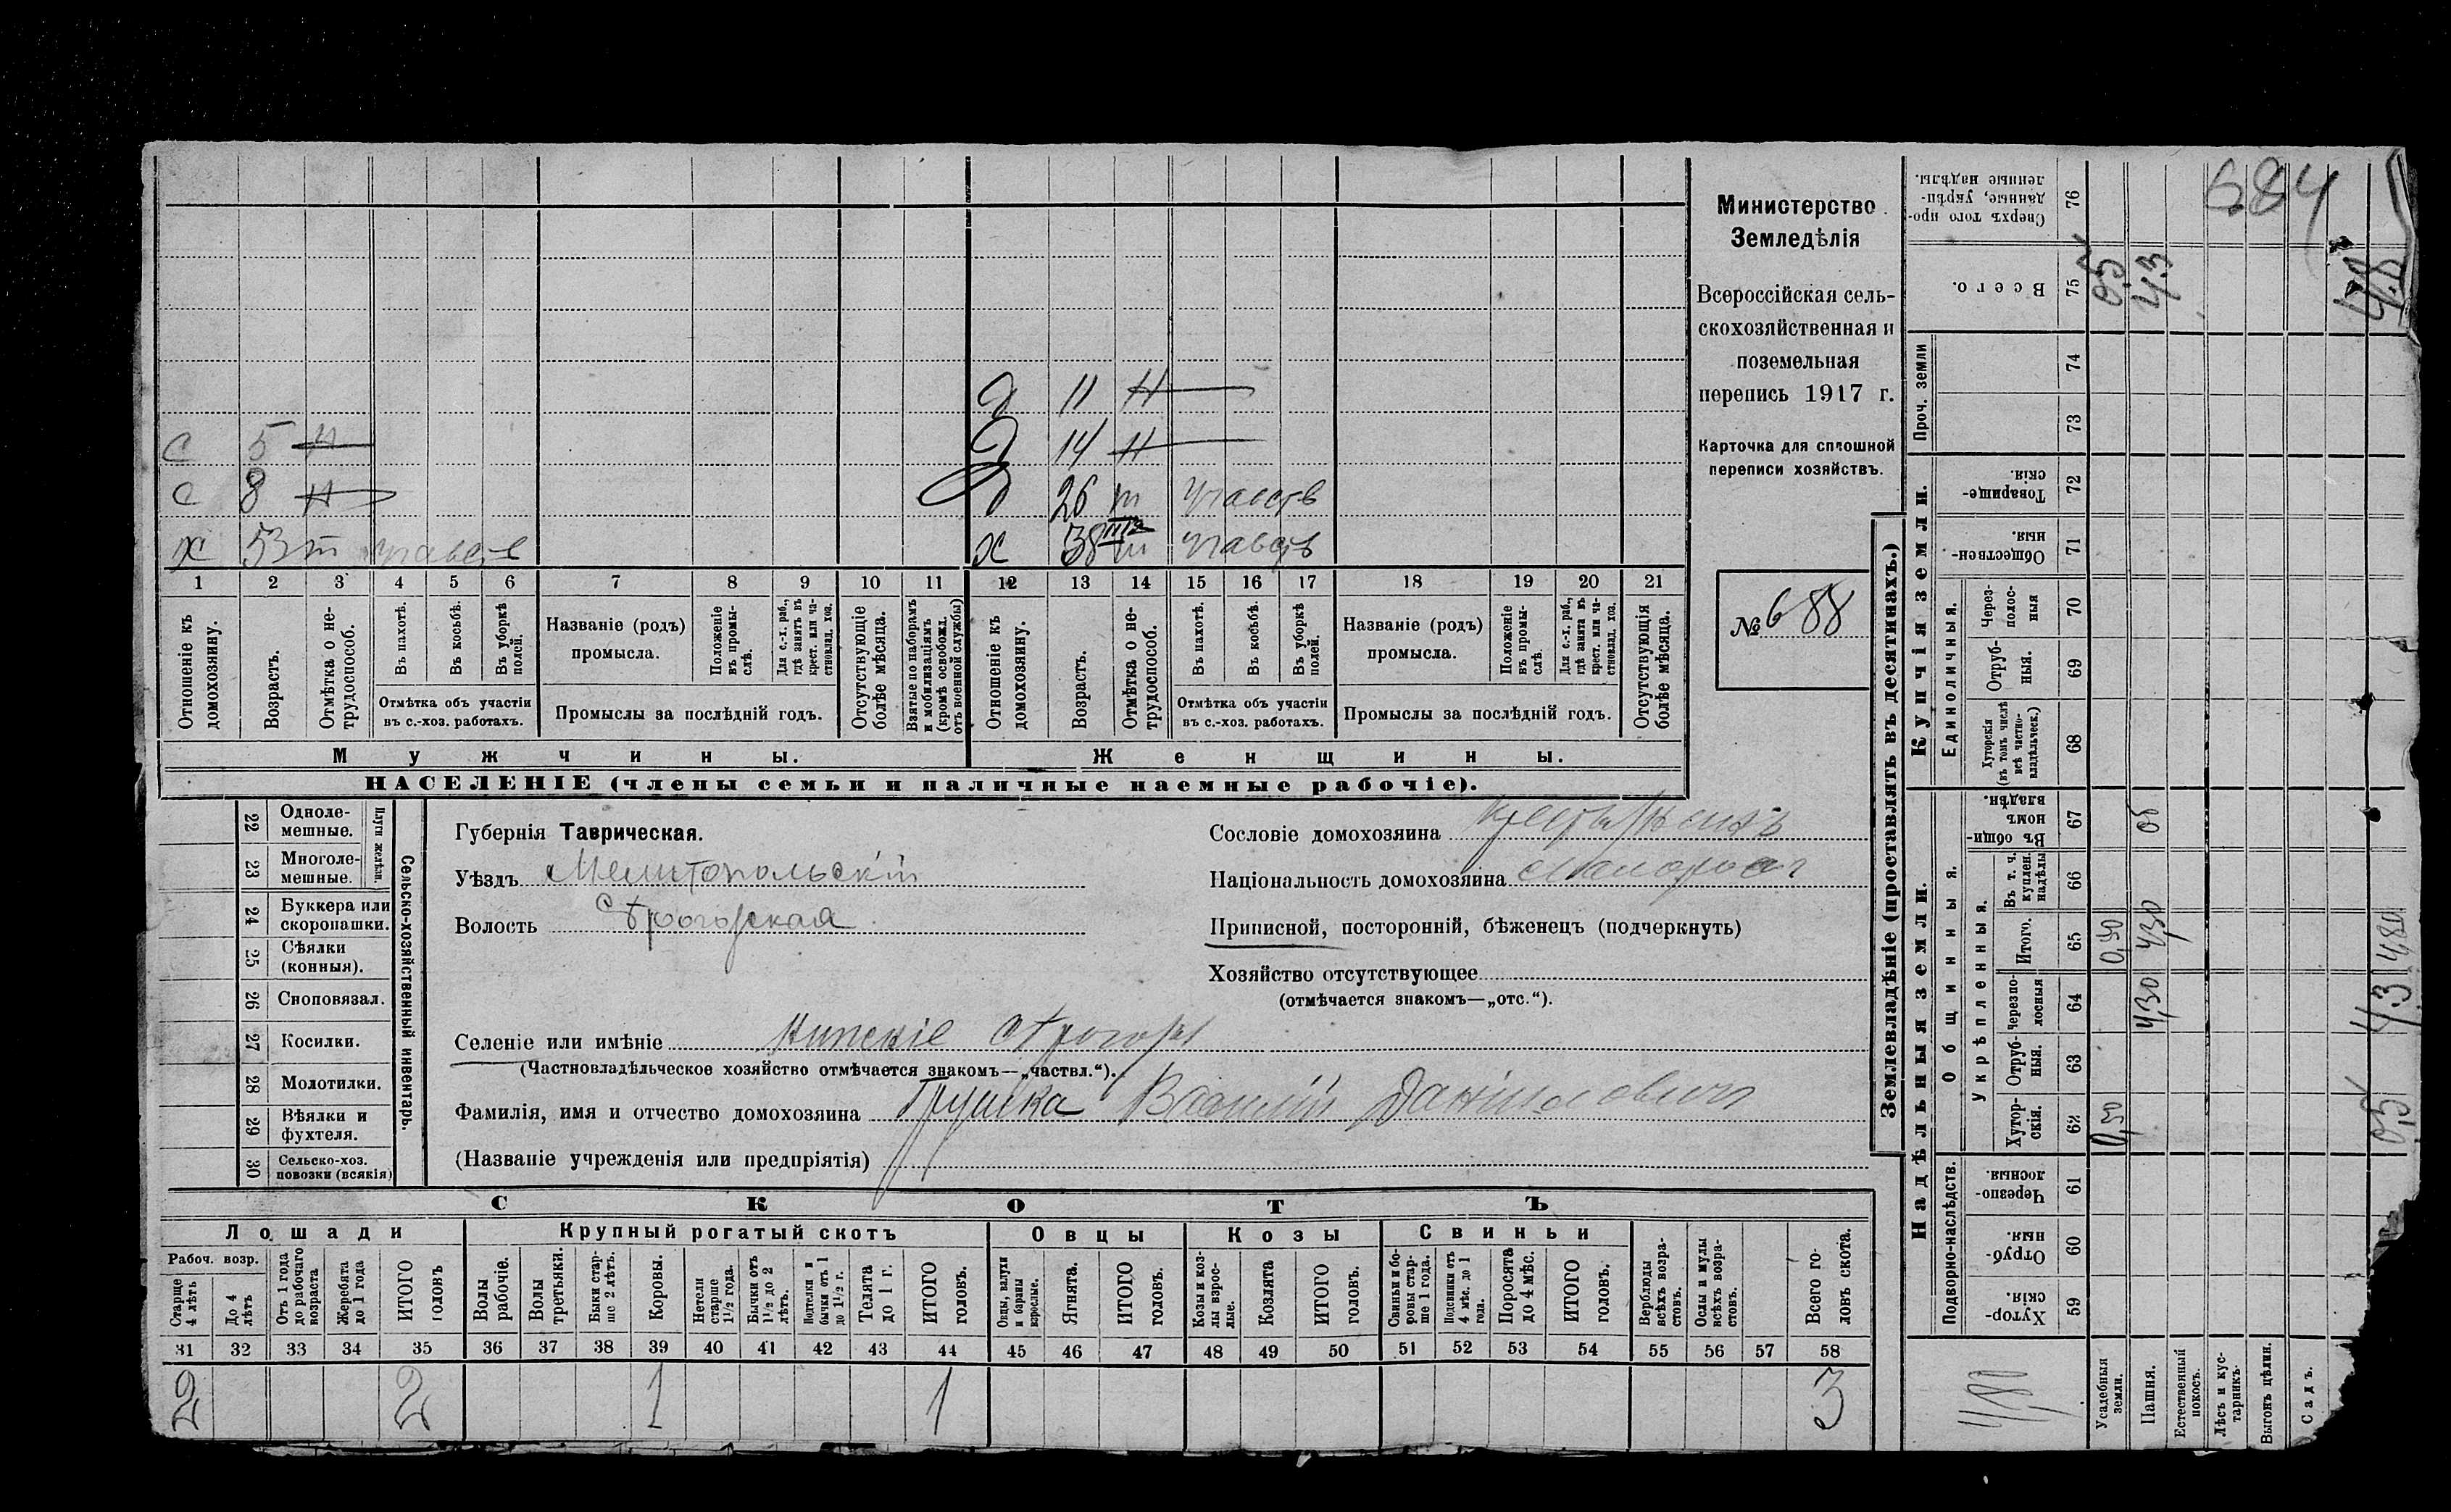 684
Министерство
Земледѣлія
Всероссійская сель-
скохозяйственная и
поземельная
перепись 1917 г.
Карточка для сплошной
переписи хозяйствъ.
№ 688
д 11 н
с 5 н д 14 н
с 8 н д 26 т участв
х 53 т участв х 38 участв
1 2 3 4 5 6 7 8 9 10 11 12 13 14 15 16 17 18 19 20 21
Отношеніе къ домохозяину.
Возрастъ.
Отмѣтка о не-трудоспособ.
Въ пахотѣ.
Въ косьбѣ.
Въ уборкѣ полей.
Отмѣтка объ участіи
въ с.-хоз. работахъ.
Названіе (родъ)
промысла.
Положеніе въ промы-слѣ.
Для с.-х. раб., гдѣ занятъ въ крест. или ча-стновлад. хоз.
Промыслы за послѣдній годъ.
Отсутствующіе болѣе мѣсяца.
Взятые по наборамъ и мобилизаціямъ (кромѣ освобожд. отъ военной службы)
Отношеніе къ домохозяину.
Возрастъ.
Отмѣтка о не-трудоспособ.
Въ пахотѣ.
Въ косьбѣ.
Въ уборкѣ полей.
Отмѣтка объ участіи
въ с.-хоз. работахъ.
Названіе (родъ)
промысла.
Положеніе въ промы-слѣ.
Для с.-х. раб., гдѣ занята въ крест. или ча-стновлад. хоз.
Промыслы за послѣдній годъ.
Отсутствующія болѣе мѣсяца.
Мужчины. Женщины.
НАСЕЛЕНІЕ (члены семьи и наличные наемные рабочіе).
22 Одноле-мешные.
23 Многоле-мешные.
Плуги желѣзн.
24 Буккера или скоропашки.
25 Сѣялки (конныя).
26 Сноповязал.
27 Косилки.
28 Молотилки.
29 Вѣялки и фухтеля.
30 Сельско-хоз. повозки (всякія)
Сельско-хозяйственный инвентарь.
Губернія Таврическая.
Уѣздъ Мелитопольскій
Волость Строгорская
Сословіе домохозяина крестьянинъ
Національность домохозяина малоросс
Приписной, посторонній, бѣженецъ (подчеркнуть)
Хозяйство отсутствующее
(отмѣчается знакомъ—„отс.“).
Селеніе или имѣніе
(Частновладѣльческое хозяйство отмѣчается знакомъ—„частвл.“).
Фамилія, имя и отчество домохозяина Грушка Василій Даниловичъ
(Названіе учрежденія или предпріятія)
СКОТЪ
Лошади Крупный рогатый скотъ Овцы Козы Свиньи
Рабоч. возр.
Старще 4 лѣтъ
До 4 лѣтъ
Отъ 1 года до рабочаго возраста
Жеребята до 1 года
ИТОГО головъ
Волы рабочіе.
Волы третьяки.
Быки стар-ше 2 лѣтъ.
Коровы.
Нетели старше 1½ года.
Бычки отъ 1½ до 2 лѣтъ.
Подтелки и бычки отъ 1 до 1½ г.
Телята до 1 г.
ИТОГО головъ.
Овцы, валухи и бараны взрослые.
Ягнята.
ИТОГО головъ.
Козы и коз-лы взрос-лые.
Козлята
ИТОГО головъ.
Свиньи и бо-ровы стар-ше 1 года.
Подсвинки отъ 4 мѣс. до 1 года.
Поросята до 4 мѣс.
ИТОГО головъ.
Верблюды всѣхъ возра-стовъ.
Ослы и мулы всѣхъ возра-стовъ.
Всего го-ловъ скота.
31 32 33 34 35 36 37 38 39 40 41 42 43 44 45 46 47 48 49 50 51 52 53 54 55 56 57 58
2 2 1 1 3
Землевладѣніе (проставлять въ десятинахъ.)
Надѣльныя земли. Купчія земли. Проч. земли
Подворно-наслѣдств. Общинныя. Единоличныя.
Укрѣпленныя.
Хутор-скія. 59
Отруб-ныя. 60
Черезпо-лосныя. 61
Хутор-скія. 62 0,50
Отруб-ныя. 63
Черезпо-лосныя 64 4,30
Итого. 65 0,50 4,30 4,80
Въ т. ч. куплен. надѣлы 66
Въ общи-номъ владѣн. 67
Хуторскія (въ томъ числѣ всѣ частно-владѣльческ.) 68
Отруб-ныя. 69
Через-полос-ныя 70
Обществен-ныя. 71
Товарище-скія. 72
73
74
Всего. 75 0,5 4,3 4,8
Сверхъ того про-данные, укрѣп-ленные надѣлы. 76
4,80
Усадебныя земли.
Пашня.
Естественный покосъ.
Лѣсъ и кус-тарникъ.
Выгонъ цѣлин.
Садъ.